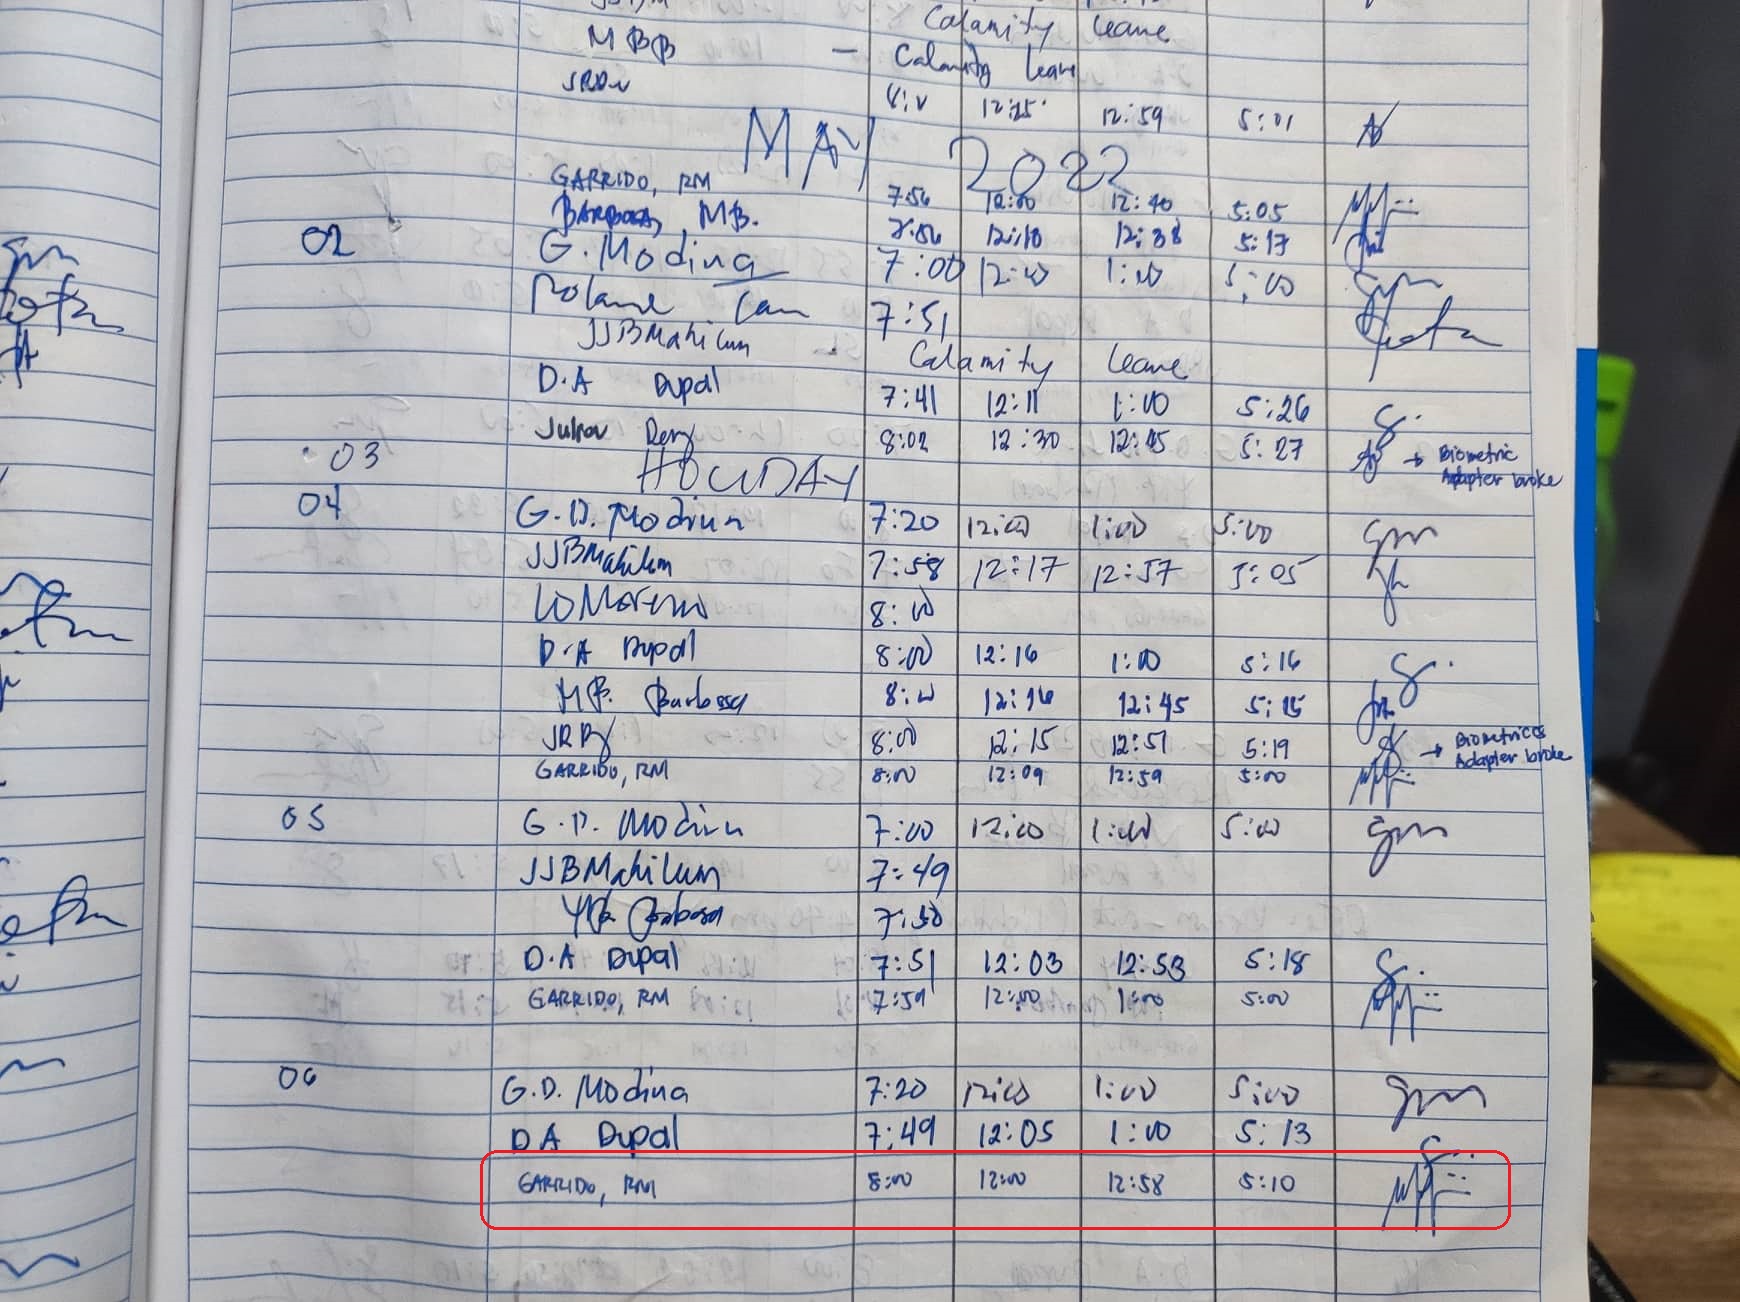 Calamity leave
MBB — Calamity leave
12:25 12:59 5:01
MAY 2022
GARRIDO, RM 7:56 12:00 12:40 5:05
02 BARBOSA, MB. 7:56 12:10 12:38 5:17
G. Modina 7:00 12:00 1:00 5:00
7:51
JJBMahilum Calamity leave
D.A Dupal 7:41 12:11 1:00 5:26
8:02 12:30 12:45 5:27 → Biometric
Adapter broke
03 HOLIDAY
04 G.D. Modina 7:20 12:00 1:00 5:00
JJBMahilum 7:58 12:17 12:57 5:05
LOMoreno 8:00
D.A Dupal 8:00 12:16 1:00 5:16
MB. Barbosa 8:00 12:16 12:45 5:15
8:00 12:15 12:51 5:19 → Biometrics
Adapter broke
GARRIDO, RM 8:00 12:09 12:59 5:00
05 G.D. Modina 7:00 12:00 1:00 5:00
JJBMahilum 7:49
Barbosa 7:50
D.A Dupal 7:51 12:03 12:53 5:18
GARRIDO, RM 7:59 12:00 1:00 5:00
06 G.D. Modina 7:20 12:00 1:00 5:00
DA Dupal 7:49 12:05 1:00 5:13
GARRIDO, RM 8:00 12:00 12:58 5:10